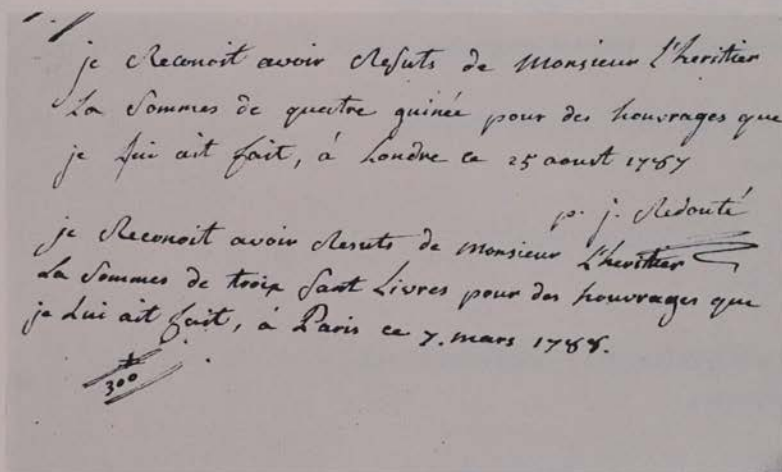 je Reconoit avoir Resuts de Monsieur L'heritier
La Sommes de quattre guinée pour des houvrages que
je Lui ait fait, à Londre ce 25 aoust 1787
p. j. Redouté
je Reconoit avoir Resuts de Monsieur L'heritier
La Sommes de troix Sant Livres pour des houvrages que
je Lui ait fait, à Paris ce 7. mars 1788.
300